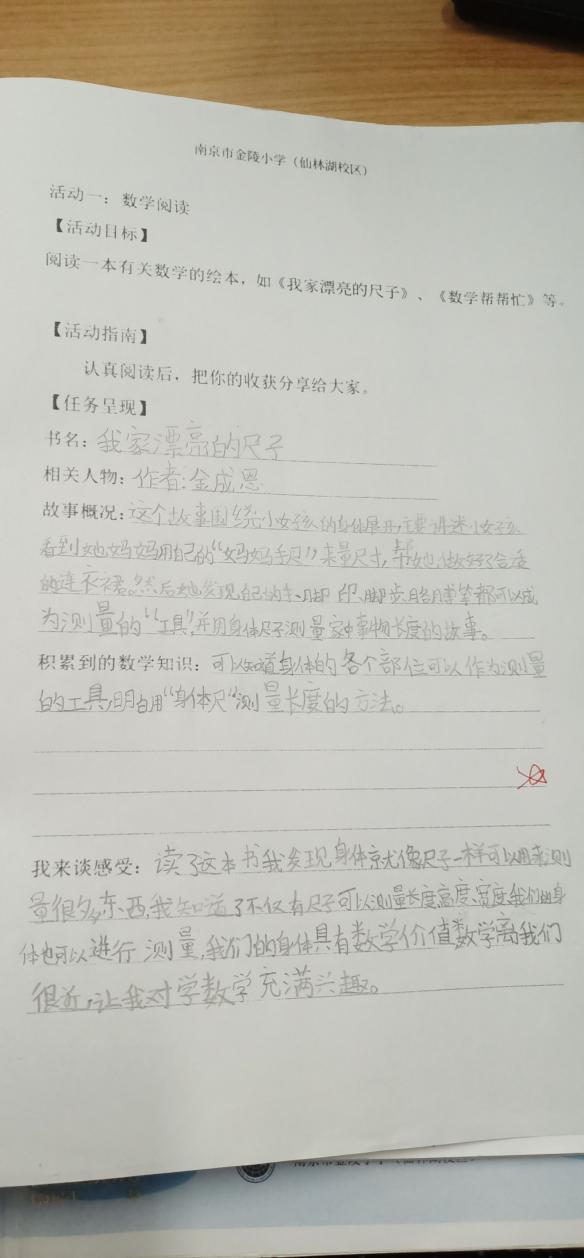 南京市金陵小学（仙林湖校区）
活动一：数学阅读
【活动目标】
阅读一本有关数学的绘本，如《我家漂亮的尺子》、《数学帮帮忙》等。
【活动指南】
认真阅读后，把你的收获分享给大家。
【任务呈现】
书名：我家漂亮的尺子
相关人物：作者：金成恩
故事概况：这个故事围绕小女孩的身体展开，主要讲述小女孩
看到她妈妈用自己的“妈妈手尺”来量尺寸，帮她做好了合适
的连衣裙。然后她发现自己的手、脚印、脚步、胳膊等都可以成
为测量的“工具”，并用身体尺子测量家中事物长度的故事。
积累到的数学知识：可以知道身体的各个部位可以作为测量
的工具，明白用“身体尺”测量长度的方法。
我来谈感受：读了这本书我发现身体就像尺子一样可以用来测
量很多东西，我知道了不仅有尺子可以测量长度、高度、宽度，我们的身
体也可以进行测量，我们的身体具有数学价值数学离我们
很近，让我对学数学充满兴趣。